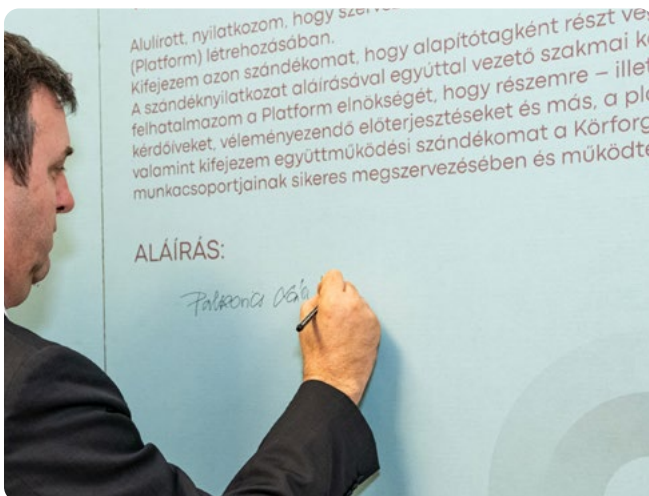 Alulírott, nyilatkozom, hogy szerv
(Platform) létrehozásában.
Kifejezem azon szándékomat, hogy alapítótagként részt ve
A szándéknyilatkozat aláírásával egyúttal vezető szakmai k
felhatalmazom a Platform elnökségét, hogy részemre – illet
kérdőíveket, véleményezendő előterjesztéseket és más, a pl
valamint kifejezem együttműködési szándékomat a Körforg
munkacsoportjainak sikeres megszervezésében és működte
ALÁÍRÁS: